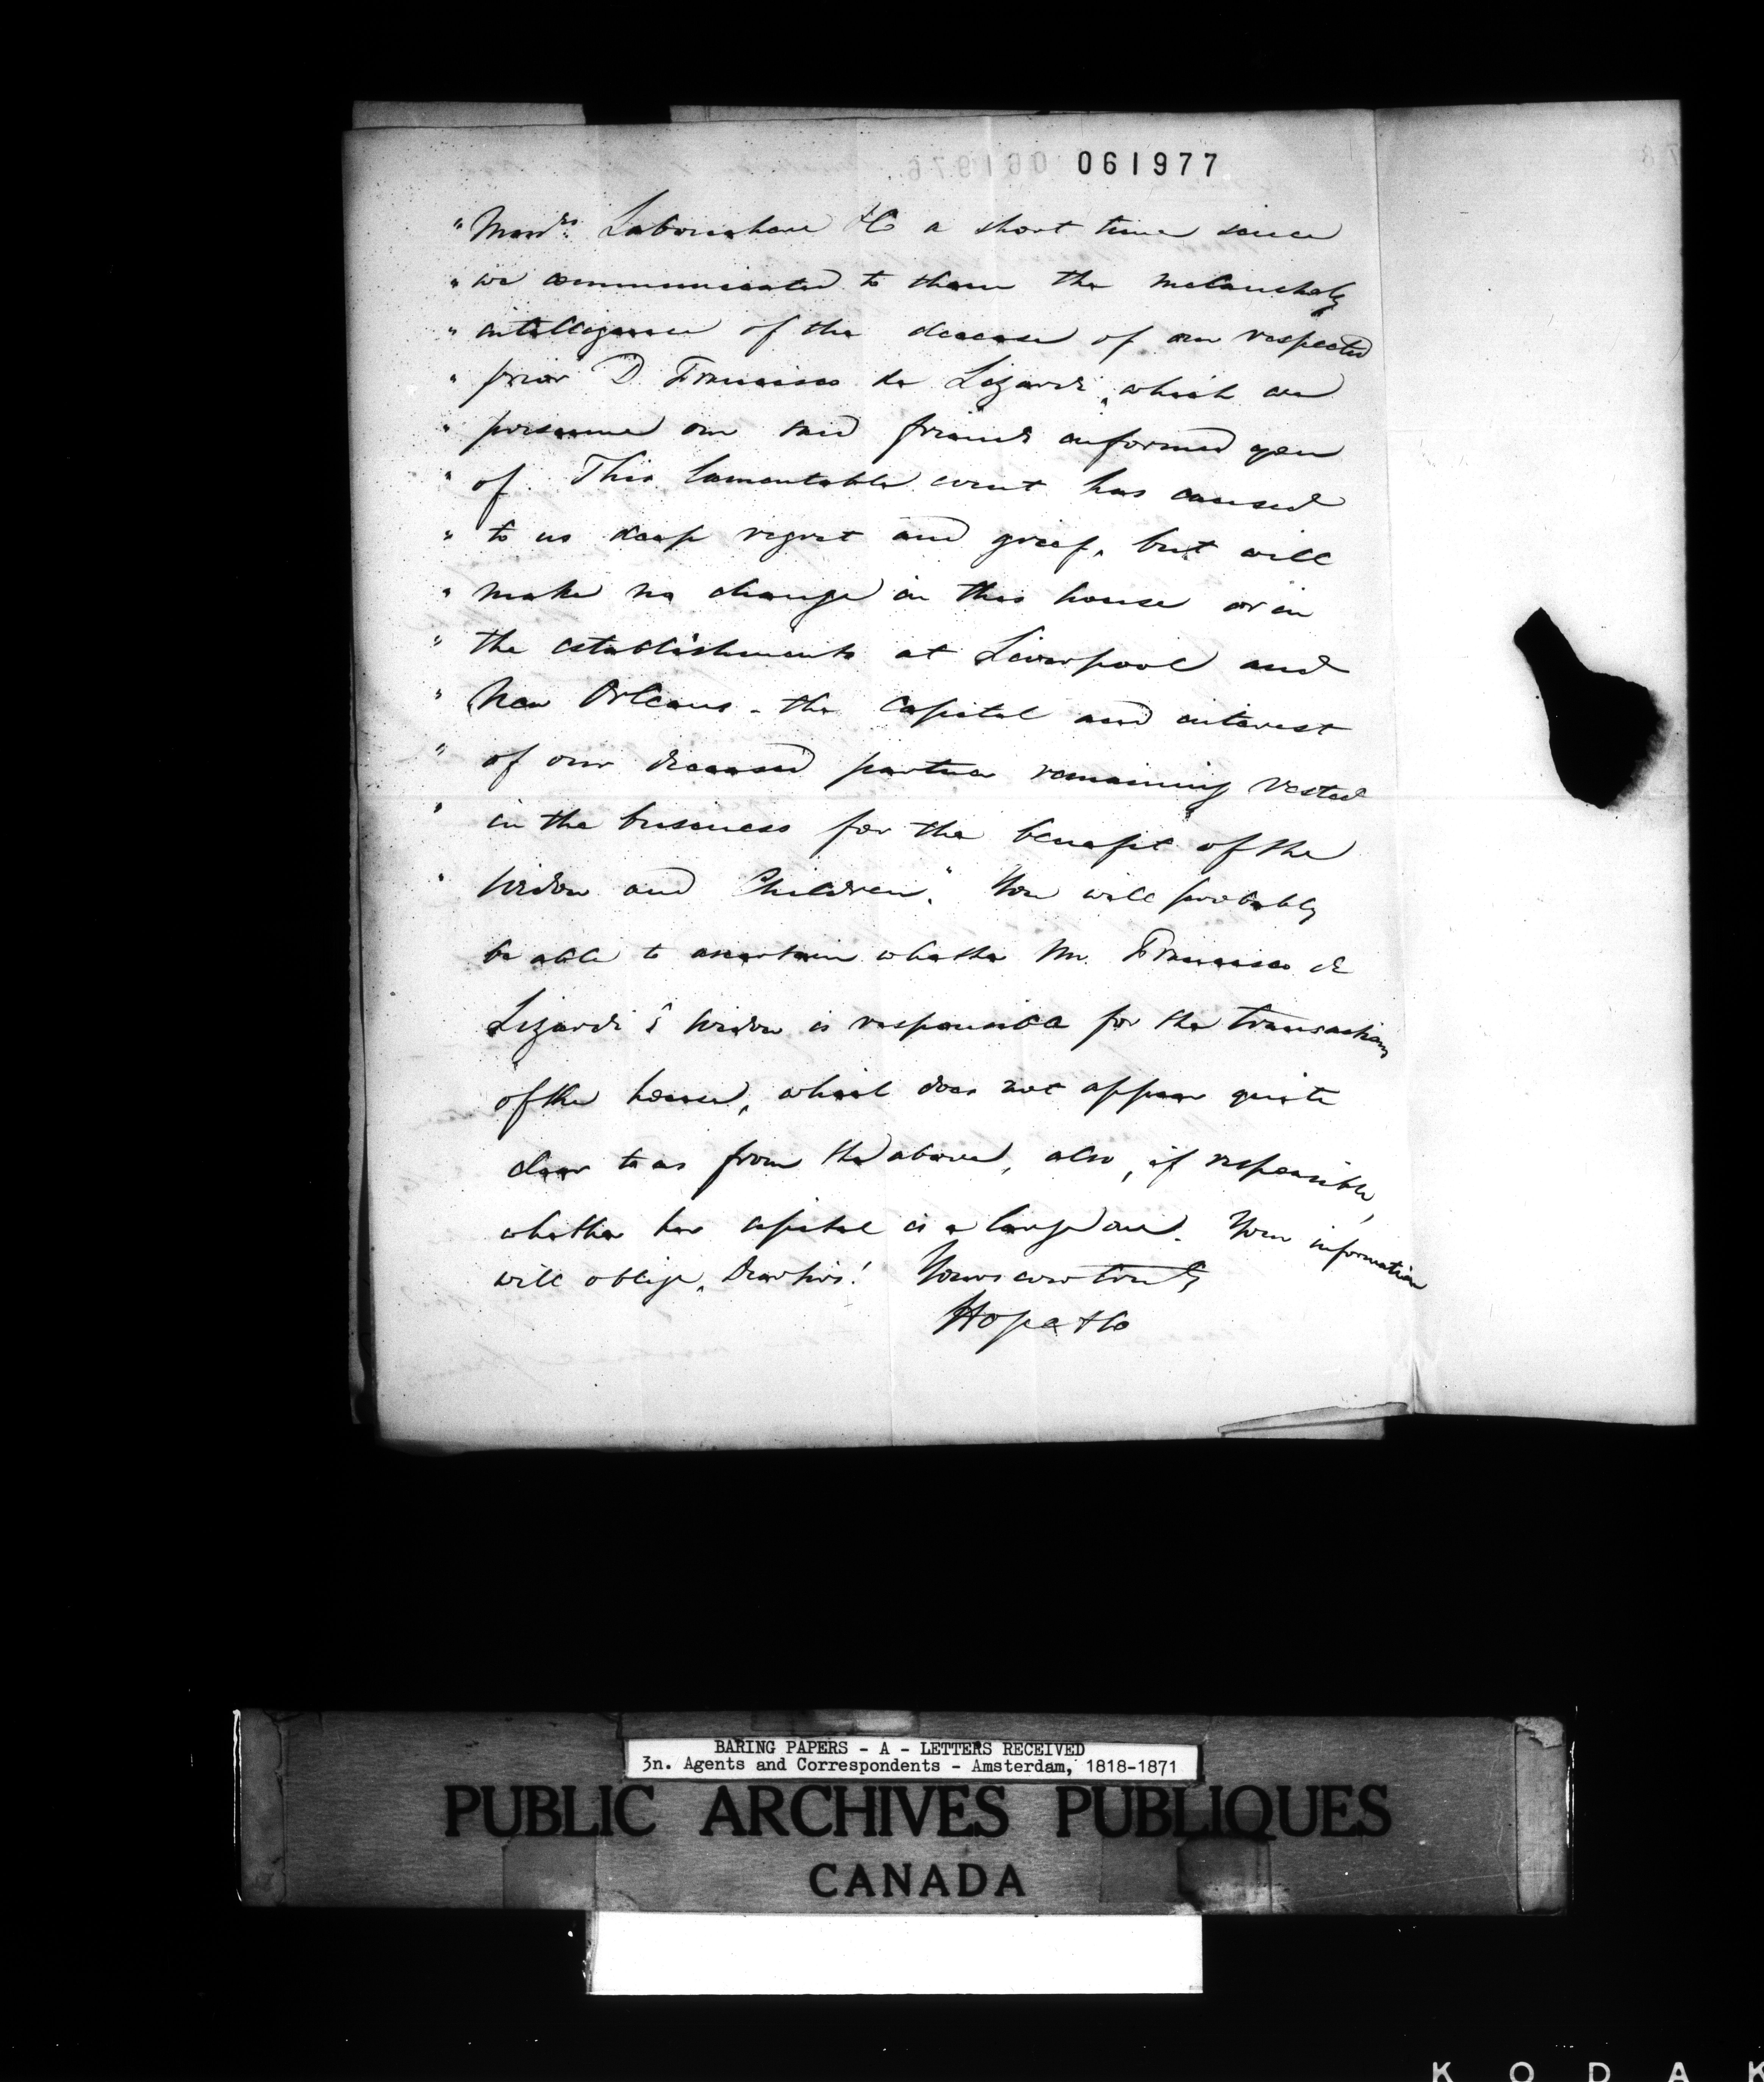 061977
" Mess.rs Labouchere &C a short time since
" we communicated to them the melancholy
" intelligence of the decease of our respected
" prior D. Francisco de Lizardi, which we
" presume our said friends informed you
" of. This lamentable event has caused
" to us deep regret and grief, but will
" make no change in this house or in
" the establishments at Liverpool and
" New Orleans - the Capital and interest
" of our deceased partner remaining vested
" in the business for the benefit of the
" Widow and Children." You will probably
be able to ascertain whether Mr. Francisco de
Lizardi's Widow is responsible for the transactions
of the house, which does not appear quite
clear to us from the above, also, if responsible,
whether her capital is a large one. Your information
will oblige, Dear Sirs! Yours very truly
Hope & Co
BARING PAPERS - A - LETTERS RECEIVED
3n. Agents and Correspondents - Amsterdam, 1818-1871
PUBLIC ARCHIVES PUBLIQUES
CANADA
KODAK